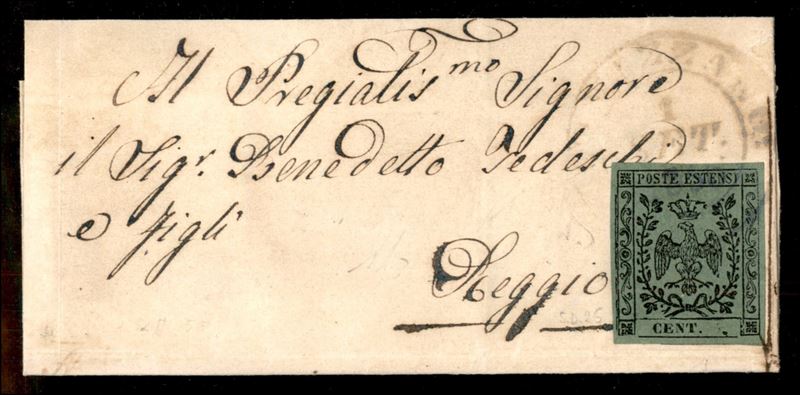 Al Pregialis.mo Signore
il Sigr. Benedetto Tedeschi
e figli
Reggio
POSTE ESTENSI
CENT.